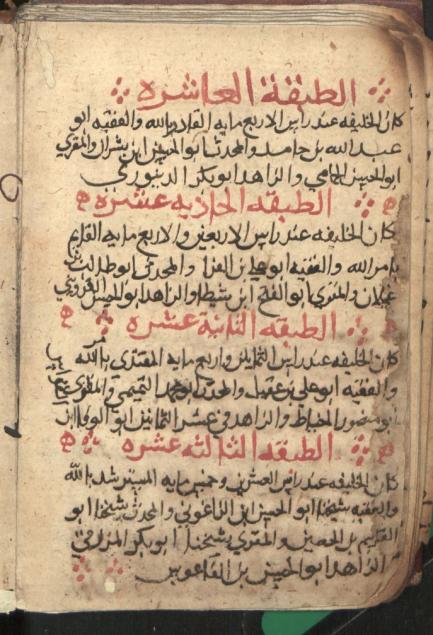 الطبقة العاشره
كان الخليفه عند راس الاربع مايه القادر بالله والفقيه ابو
عبد الله بن حامد والمحدث ابو الحسين ابن بشران والمقري
ابو الحسن الحمامي والزاهد ابو بكر الدينوري
الطبقه الحاديه عشره
كان الخليفه عند راس الاربعين والاربع مايه القايم
بامر الله والفقيه ابو يعلى بن الفرا والمحدث ابو طالب بن
غيلان والمقري ابو الفتح ابن شيطا والزاهد ابو الحسن القزويني
الطبقه الثانية عشره
كان الخليفه عند راس الثمانين واربع مايه المقتدي بالله
والفقيه ابو علي بن عقيل والمحدث ابو محمد التميمي والمقري
ابو منصور الخياط والزاهد في عشر الثمانين ابو الوفا
الطبقه الثالثه عشره
كان الخليفه عند راس العشرين وخمس مايه المسترشد بالله
والفقيه شيخنا ابو الحسن ابن الزاغوني والمحدث شيخنا ابو
القاسم بن الحصين والمقري شيخنا ابو بكر المزرفي
والزاهد ابو الحسن بن الفاعوس